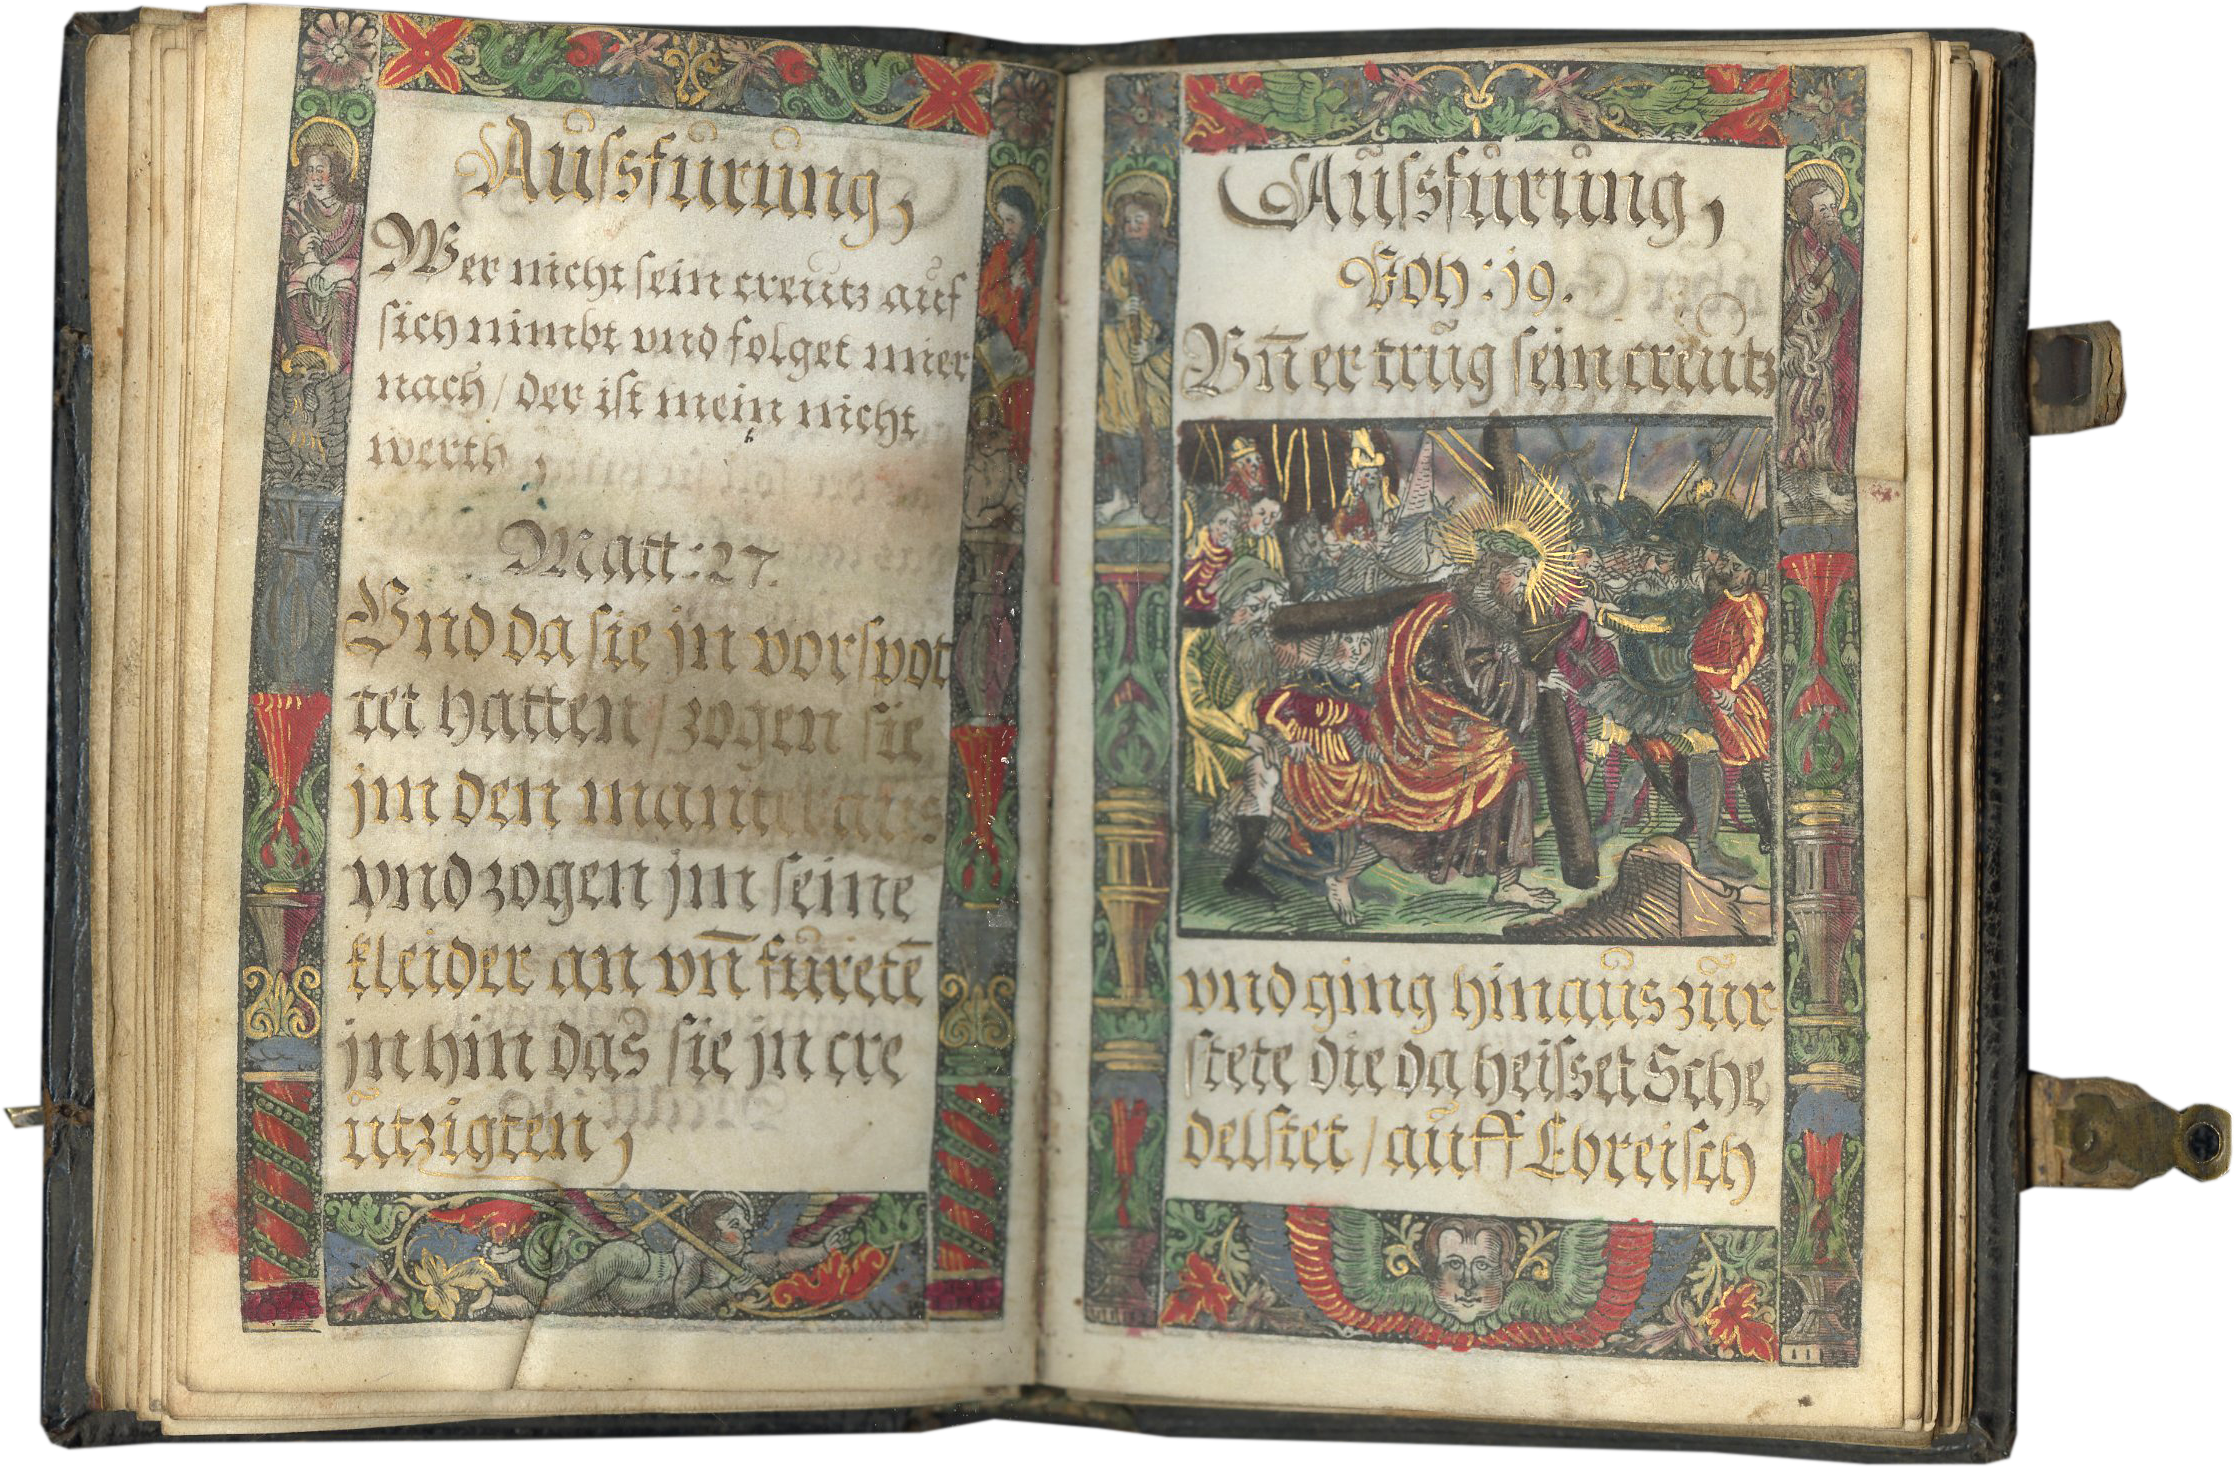 Aussfürüng,
Wer nicht sein creutz auf
sich nimbt vnd folget mier
nach / der ist mein nicht
werth,
Matt: 27.
Vnd da sie jn vorspot
tet hatten / zogen sie
jm den mantel aus
vnd zogen jm seine
kleider an vn̄ füretē
jn hin das sie jn cre
utzigten,
Aussfürüng,
Joh: 19.
Vn̄ er trug sein creutz
vnd ging hinaus zur
stete die da heisset Sche
delstet / auff Ebreisch